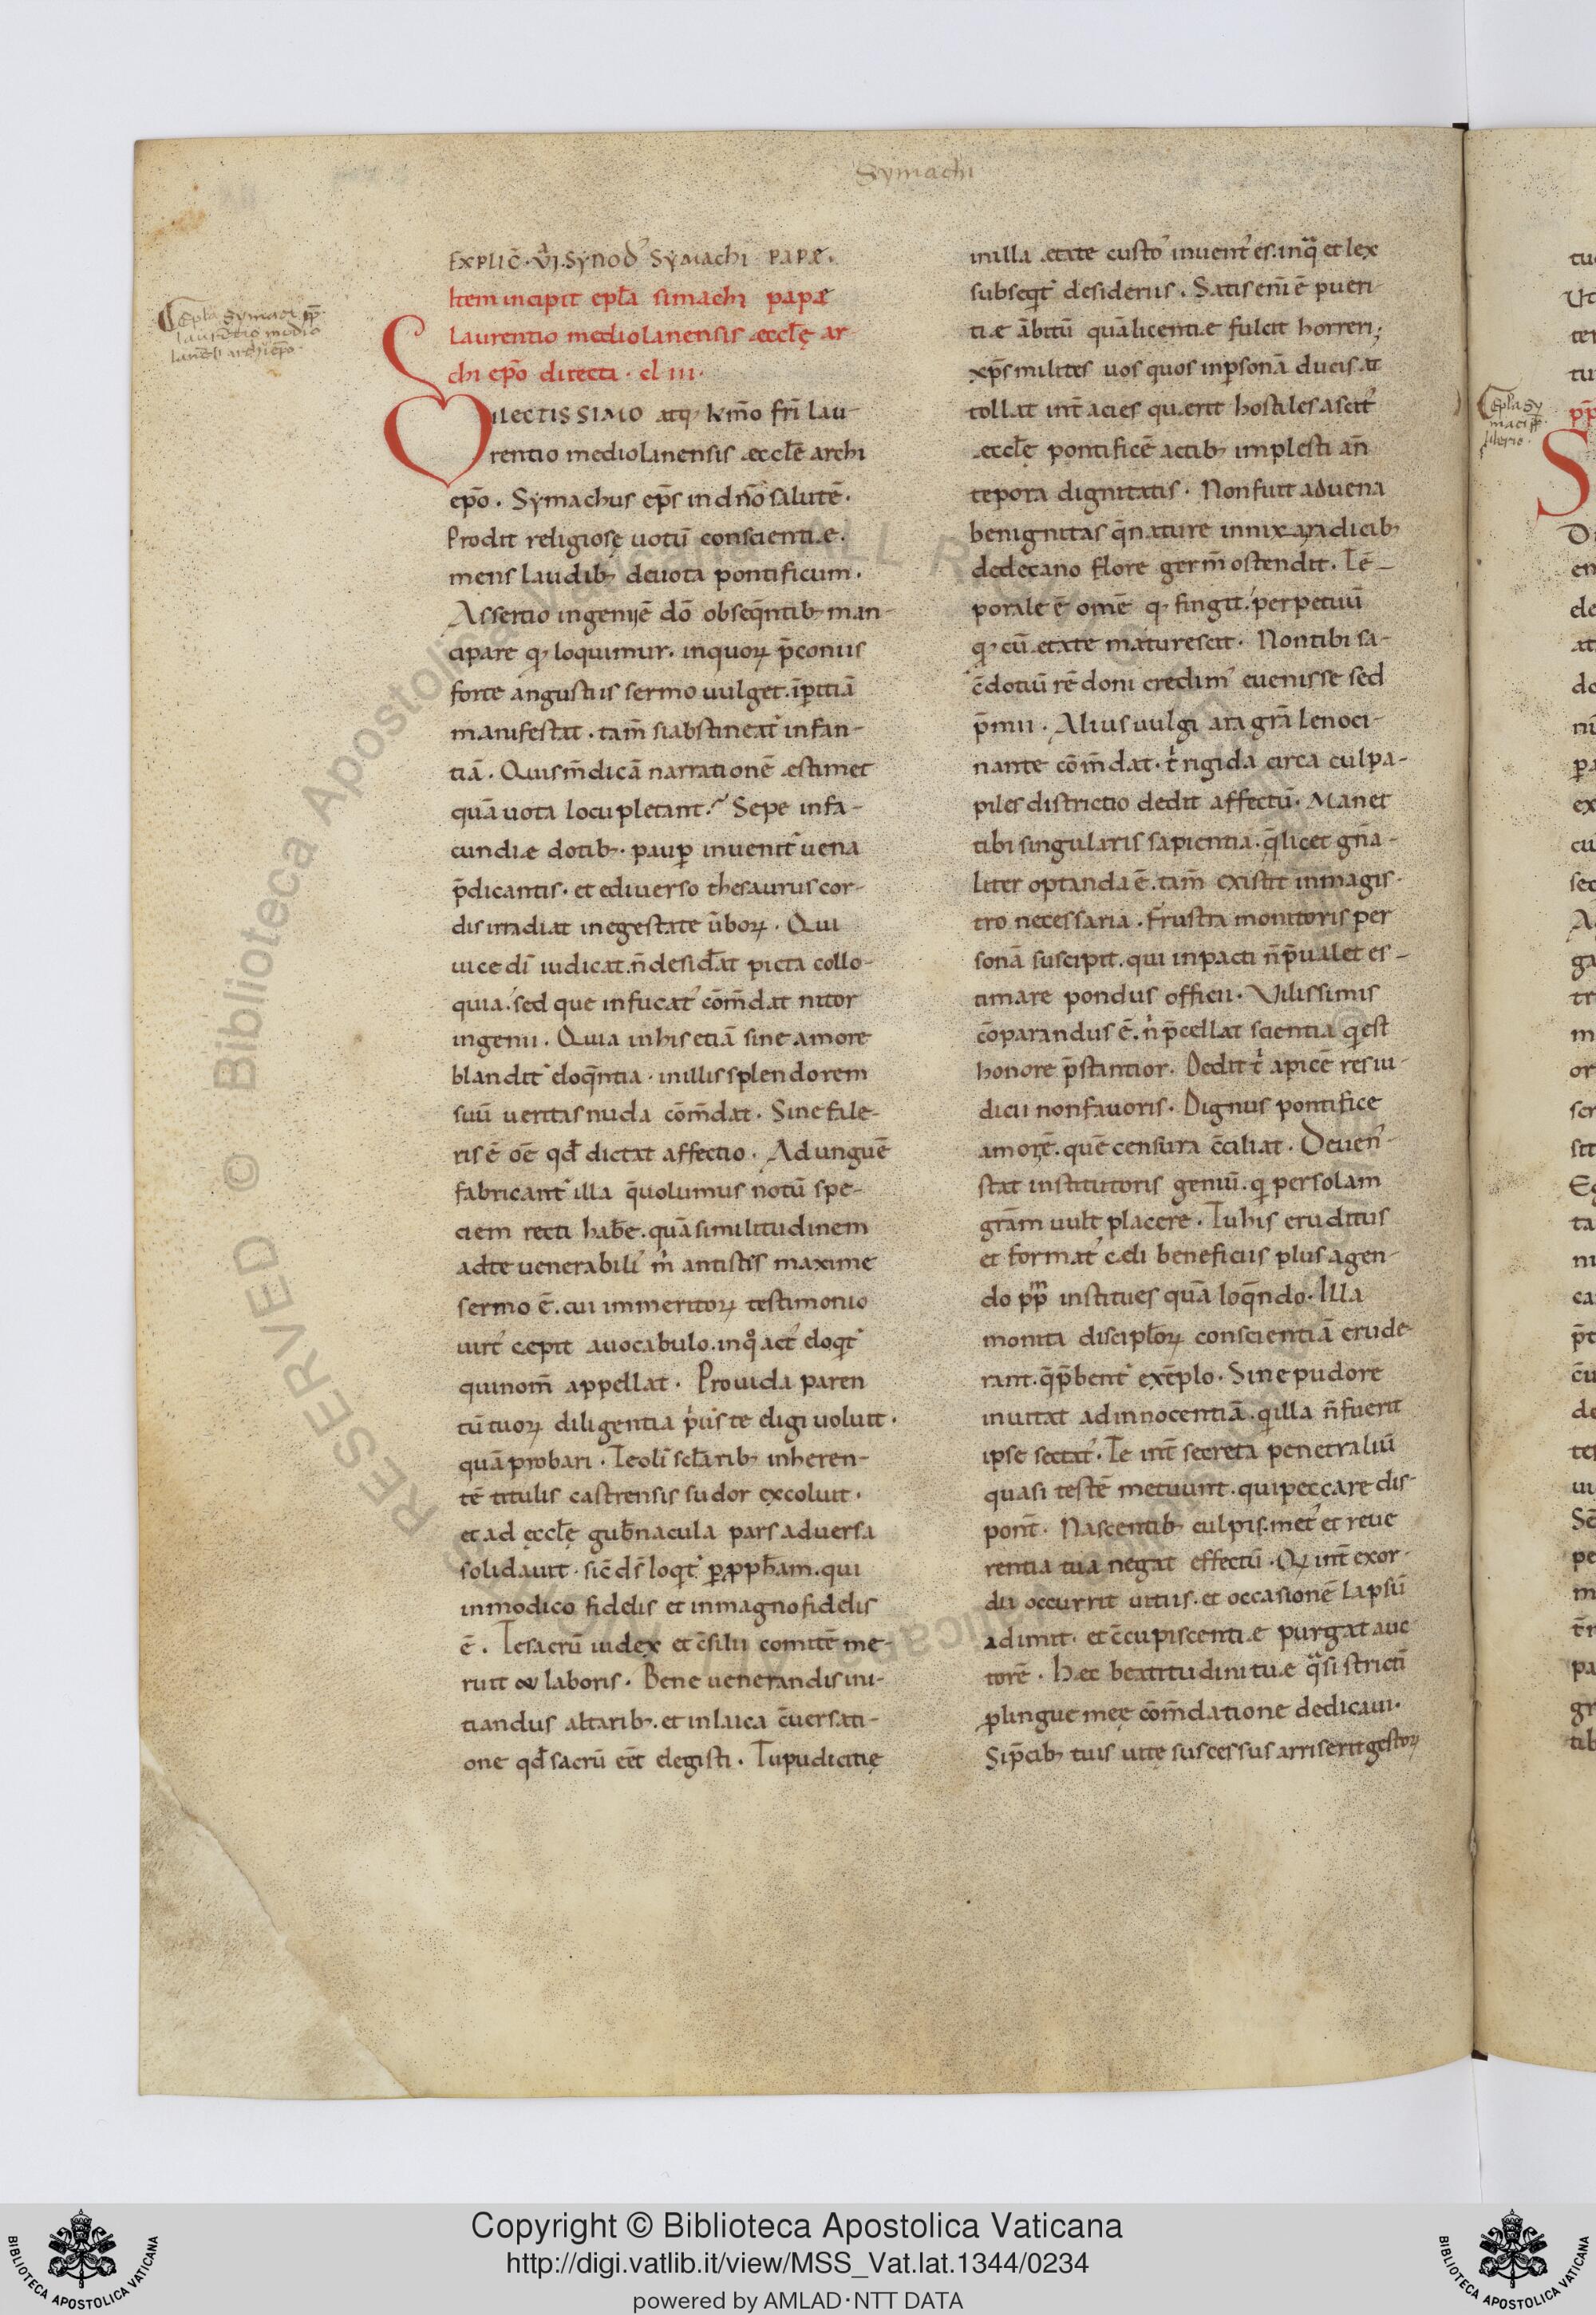 Symachi
Epla Symaci pp̄.
Laurētio medio
lanēsi archiepō.
EXPLIC̄. VI. SYNOD' SYMACHI PAPÆ.
Item incipit epl̄a simachi papæ
Laurentio mediolanensis æccl̄ę ar
chi epō directi. cl III.
DILECTISSIMO atq; kmo fr̄i lau-
rentio mediolanensis æccl̄e archi
epō. Symachus ep̄s in dn̄o salutē.
Prodit religiosę uotū conscientiæ.
mens laudib; deuota pontificum.
Assertio ingenij ē dō obseq̄ntib; man-
cipare q; loquimur. in quoꝝ p̄coniis
forte angustiis sermo uulget. īpitiā
manifestat. tam̄ si abstineat' infan-
tiā. Quis m̄dicā narrationē æstimet
quā uota locupletant? Sepe infa-
cundiæ dotib;. paup̄ inuenit' uena
p̄dicantis. et ediuerso thesaurus cor-
dis irradiat in egestate ūboꝝ. Qui
uice dī iudicat. n̄ desid̄at picta collo-
quia. sed que infucat' cōm̄dat nitor
ingenii. Quia in his etiā sine amore
blandit' eloq̄ntia. in illis splendorem
suū ueritas nuda cōm̄dat. Sine fale-
ris ē oē qd̄ dictat affectio. Ad unguē
fabricant' illa q̄ uolumus notū spe-
ciem recti hab̄e. quā similitudinem
ad te uenerabili' m̄ antistes maxime
sermo ē. cui immeritoꝝ testimonio
uirt' cępit auocabulo. in qͦ act' eloqt'
qui nom̄ appellat. Prouida paren
tū tuoꝝ diligentia pius te eligi uoluit.
quā probari. Te oli scl̄arib; inheren-
tē titulis castrensis sudor excoluit.
et ad ęccl̄ę gub̄nacula pars aduersa
solidauit. sic̄ ds̄ loqt' ꝑ ꝓph̄am. qui
in modico fidelis et in magno fidelis
ē. Te sacrū iudex et c̄silii comitē me-
ruit & laboris. Bene uenerandis ini-
tiandus altarib;. et in laica c̄uersati-
one qd̄ sacrū eēt elegisti. Tu pudicitię
in illa ætate custo' inuent' es. inqͣ et lex
subseqt' desideriis. Satis eni ē pueri-
tiæ ābitū quā licentiæ fulcit horreri;
xp̄s milites uos quos in ꝑsonā ducis at
tollat int̄ acies quærit hostiles asciť
æccl̄ę pontificē actib; implesti an̄
tēpora dignitatis. Non fuit aduena
benignitas q̄ naturę innixa radicib;
dedecano flore germ̄ ostendit. Tē-
porale ē omē q; fingit. perpetuū
q; cū ætate maturescit. Non tibi sa-
c̄dotiū rē doni credim' euenisse sed
p̄mii. Alius uulgi ara grā lenoci-
nante cōm̄dat. t' rigida circa culpa-
piles districtio dedit affectū. Manet
tibi singularis sapientia. q̄ licet gn̄a-
liter optanda ē. tam̄ existit in magis-
tro necessaria. Frustra monitoris per
sonā suscipit. qui inpacti n̄ p̄ualet es-
timare pondus officii. Vilissimis
cōparandus ē. n̄ p̄cellat scientia q est
honore p̄stantior. Dedit t' apicē res iu-
dicii non fauoris. Dignus pontifice
amorē. quē censura c̄ciliat. Deuen-
stat institutoris geniū. q per solam
grām uult placere. Tu his eruditus
et format' cedi beneficiis plus agen-
do ppͫ institues quā loq̄ndo. Illa
monita discipl̄oꝝ conscientiā erude-
rant. q̄ p̄bent' exēplo. Sine pudore
inuitat ad innocentiā. q illa n̄ fuerit
ipse sectat'. Te int̄ secreta penetraliū
quasi testē metuunt. qui peccare dis-
pon̄t. Nascentib; culpis. met' et reue
rentia tua negat effectū. Qꝝ int̄ exor-
dii occurrit uitiis. et occasionē lapsū
adimit. et c̄cupiscentiæ purgat auc
torē. Hæc beatitudini tuæ qͣsi stricti
ꝓlingue meę cōm̄datione dedicaui.
Si p̄cib; tuis uitę suscessus arriserit gestoꝝ
Epl̄a Sy
maci pp̄
liberio.